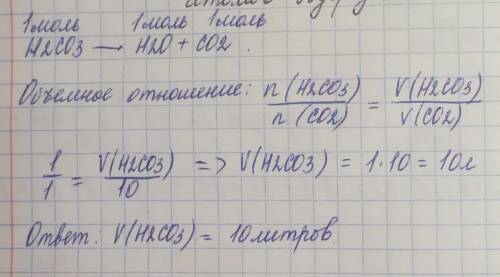 1моль 1моль 1моль
H2CO3 → H2O + CO2.
Объемное отношение: n(H2CO3)/n(CO2) = V(H2CO3)/V(CO2)
1/1 = V(H2CO3)/10 => V(H2CO3) = 1·10 = 10л
Ответ: V(H2CO3) = 10литров.